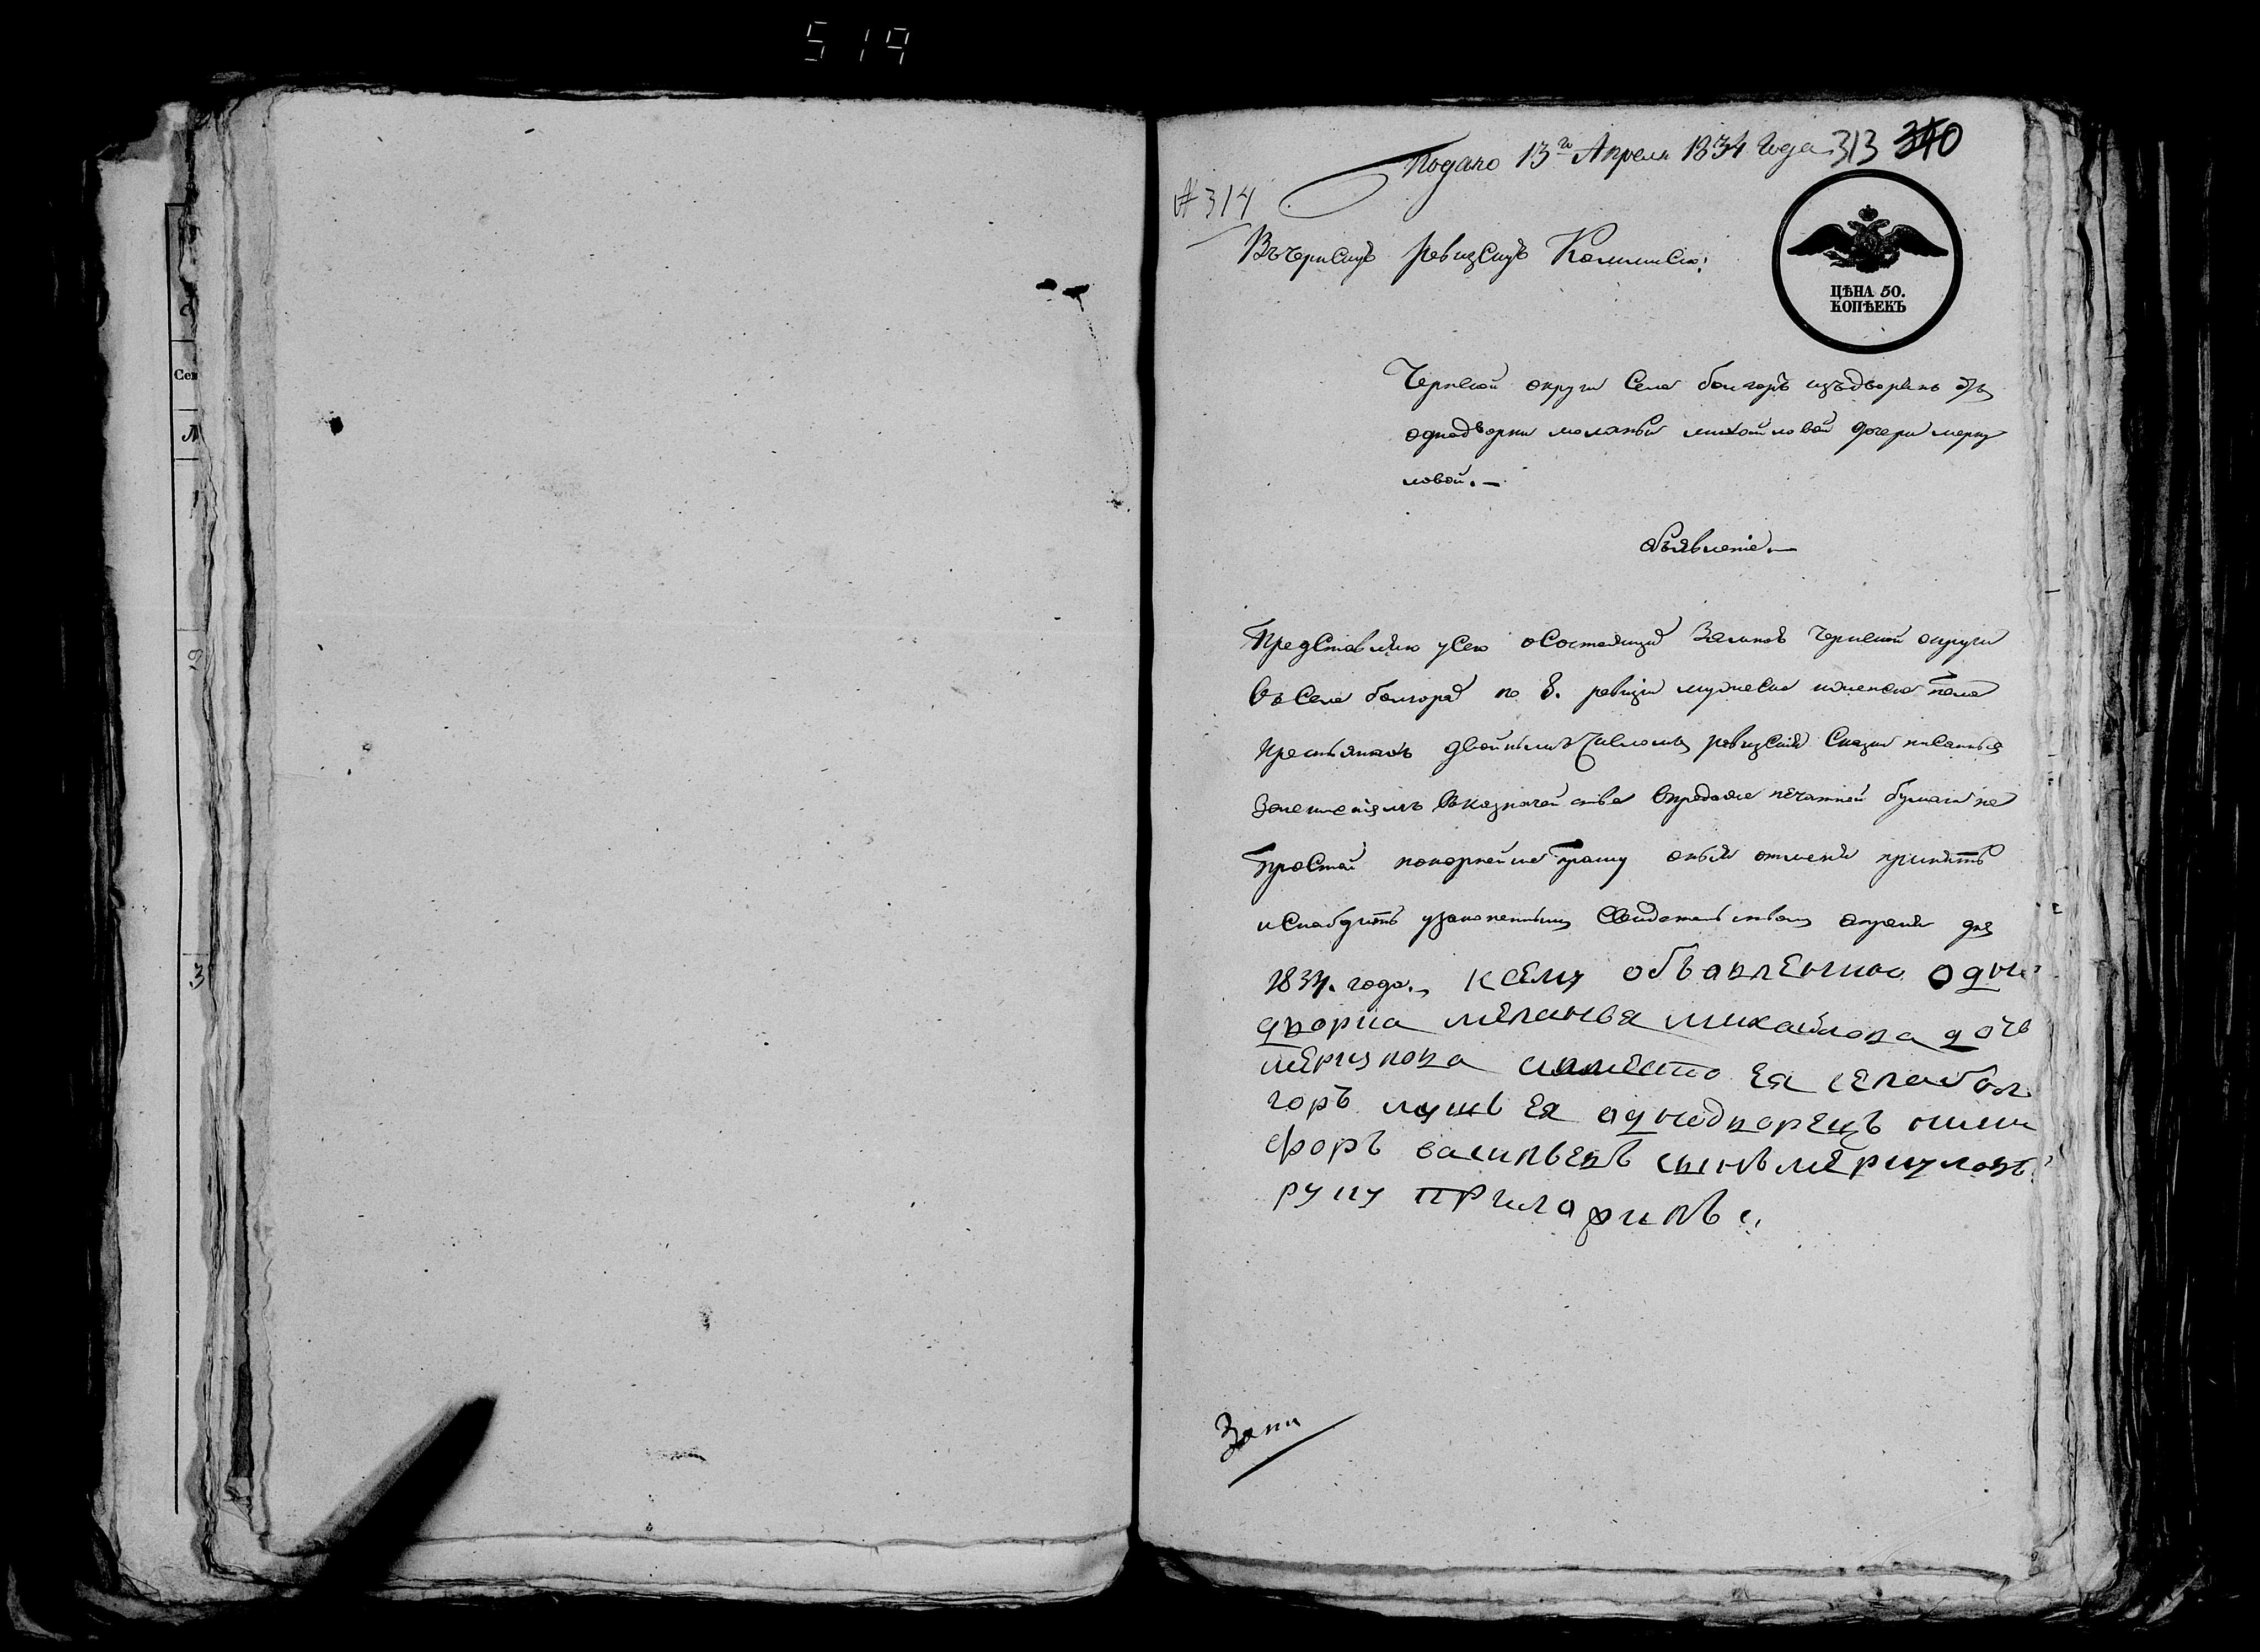 519
Подано 13го Апреля 1834 Года 313 340
№ 314
ЦѢНА 50.
КОПѢЕКЪ
Въчернскую ревизскую Комиссию:
Чернской округи Села болгоръ изъдворянъ отъ
однодворки меланьи михайловой дочери мерку
ловой.—
объявление.—
Представляю усего осостоящих Замною чернской округи
Въ Селе болгорах по 8. ревизии мужеска иженска пола
крестьянахъ двойнымъ числомъ ревизския Сказки писанныя
Занеимениемъ Вказначействе Впродаже печатной бумаги на
Простой покорнейше Прошу оныя отменя принять
иСнабдить узаконеннымъ Свидетельствомъ апреля дня
1834. года., ксему объавлению одно
дворка меланья михайлова дочь
меркулова вместо ея села бол
горъ мужъ ея однодворецъ ники
форъ васильевъ сынъ меркуловъ
руку приложилъ
Сек
Л
1
2
3